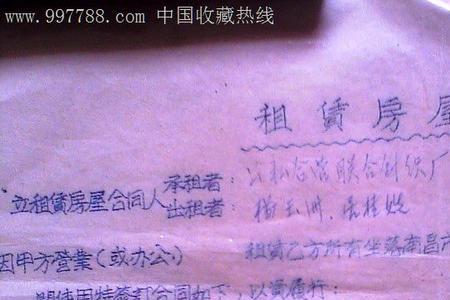 www.997788.com 中国收藏热线
租赁房屋
承租者：公私合营联合针织厂
立租赁房屋合同人
出租者：杨玉洲
因甲方营业（或办公）租赁乙方所有坐落南昌市
使用特签订合同如下，以资履行：